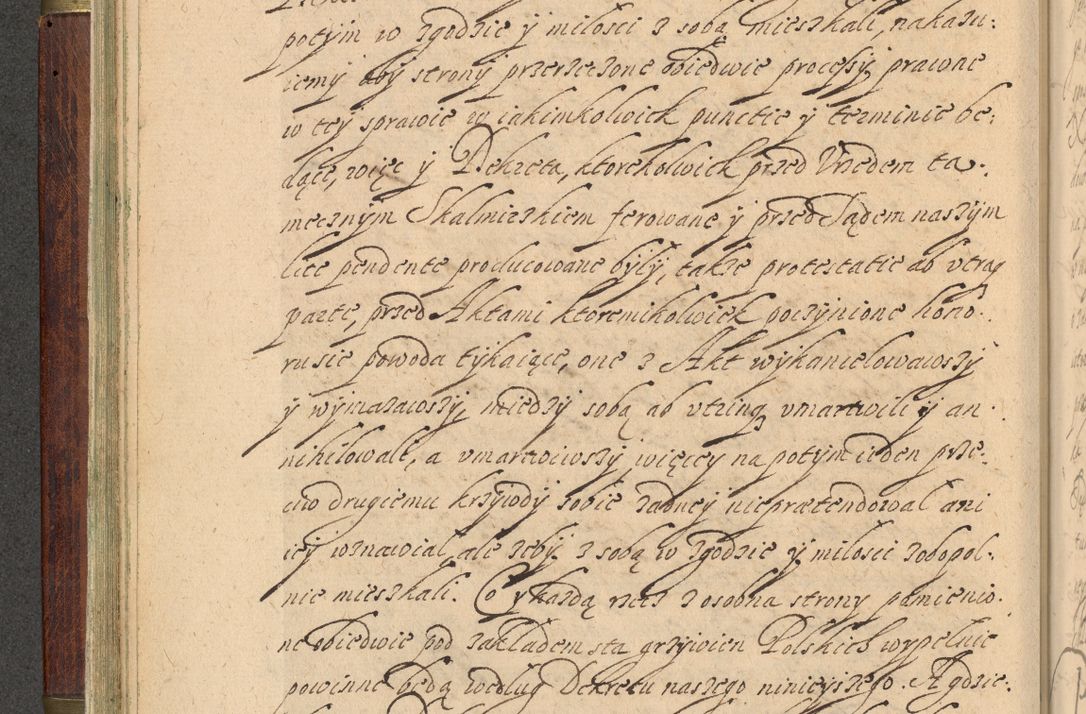 potym w zgodzie y miłosci z sobą mieszkali, nakazu:
iemy aby strony przerzeczone obiedwie processy prawne
w tey sprawie w iakimkolwiek punctie y terminie bę:
dące, więc y Dekreta, ktorekolwiek przed Vrzędem ta:
mecznym Skalmierskiem ferowane y przed Sądem naszym
lite pendente producowane były, także protestatie ab vtraq
parte, przed Aktami ktoremikolwiek poczynione hono:
ru sie powoda tykaiące, one z Akt wykancelowawszy
y wymazawszy, między sobą ab vtrinq vmartwili y an:
nihilowali, a vmartwiwszy więcey na potym ieden prze:
ciw drugiemu krzywdy sobie żadney nieprætendował ani
iey wznawiał, ale żeby z sobą w zgodzie y miłosci zobopol:
nie mieszkali. Co y każdą rzecz z osobna strony pomienio:
ne obiedwie pod zakładem sta grzywien Polskich wypełnic
powinne będą według Dekretu naszego ninieyszego. A gdzie: